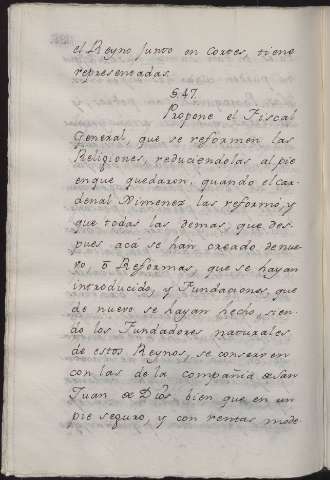 el Reyno junto en Cortes, tiene
representadas.
§. 47.
Propone el Fiscal
General, que se reformen las
Religiones, reduciendolas al pie
enque quedaron, quando el Car-
denal Ximenez las reformó, y
que todas las demas, que des-
pues acá se han creado denue-
vo ò Reformas, que se hayan
introducido, y Fundaciones, que
de nuevo se hayan hecho, sien-
do los Fundadores naturales
de estos Reynos, se conserven
con las de la compañia de San
Juan de Dios, bien que en un
pie seguro, y con rentas mode-